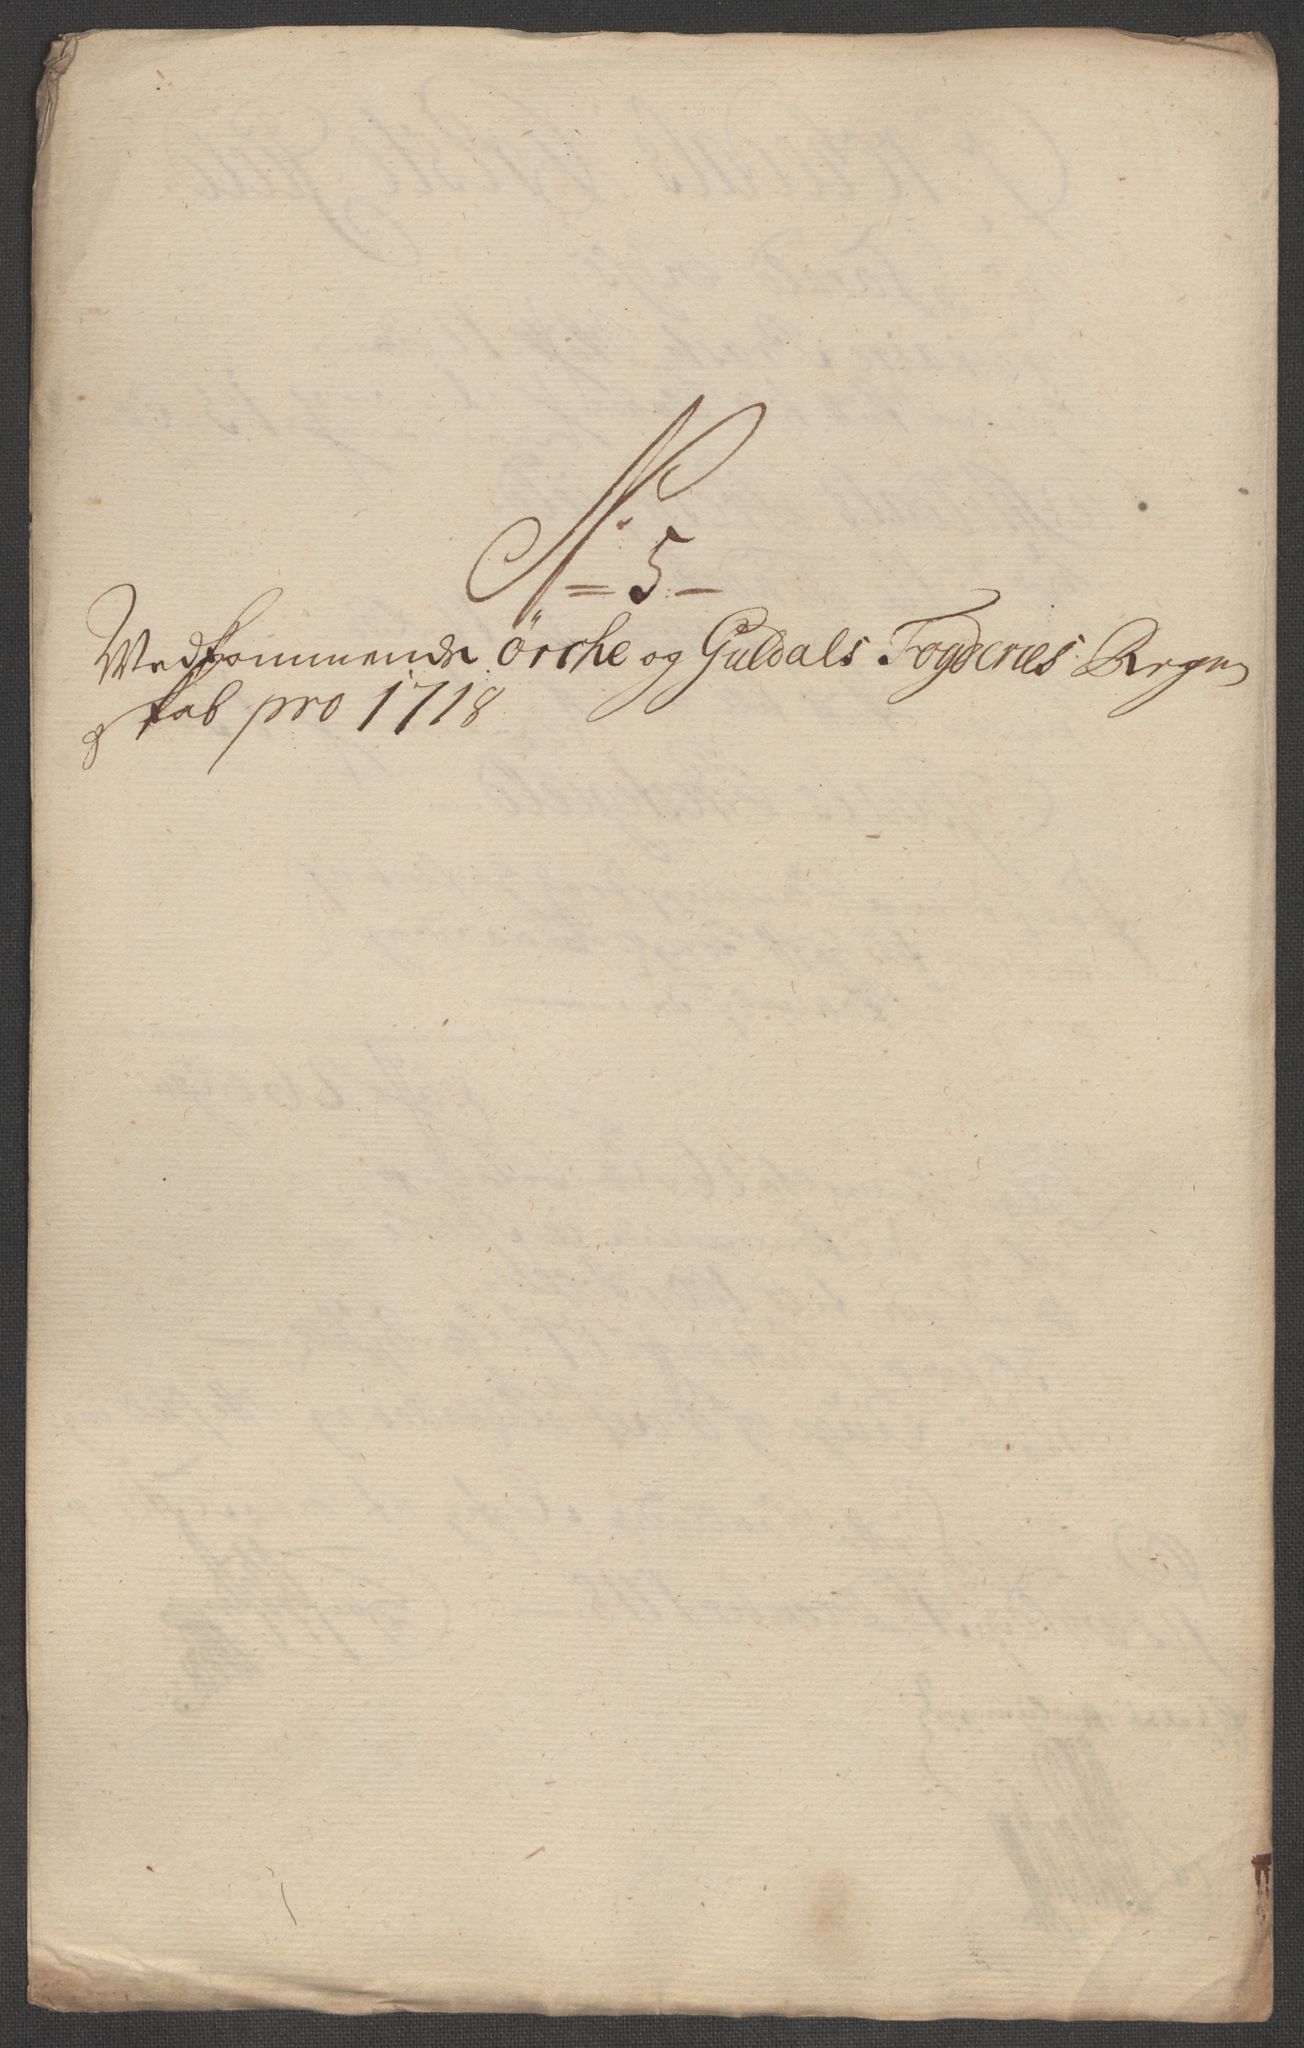 N: 5
Vedkommende örche og Guldals Fogderies Regen
skab pro 1718